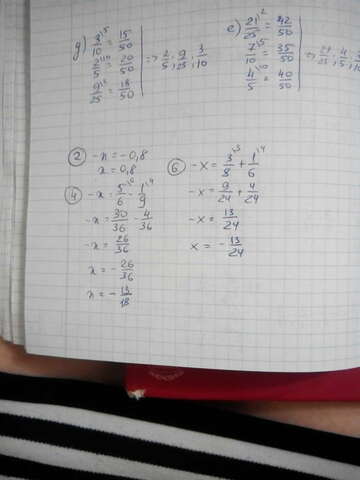 g) 3/10^5 = 15/50
2/5^10 = 20/50
9/25^2 = 18/50
=> 2/5; 9/25; 3/10
e) 21/25^2 = 42/50
7/10^5 = 35/50
4/5^10 = 40/50
=> 21/25; 4/5;
② -x = -0,8
x = 0,8
④ -x = 5/6^6 - 1/9^4
-x = 30/36 - 4/36
-x = 26/36
x = - 26/36
x = - 13/18
⑥ -x = 3/8^3 + 1/6^4
-x = 9/24 + 4/24
-x = 13/24
x = - 13/24